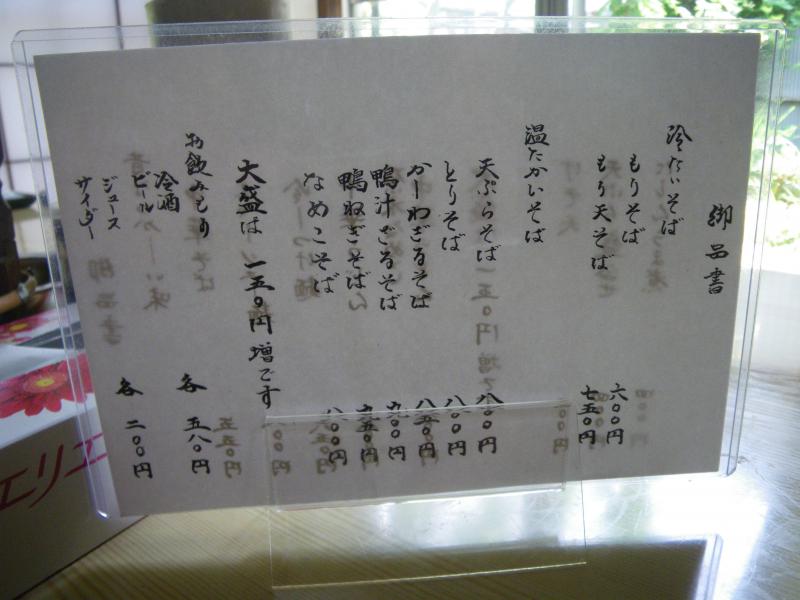 御品書
冷たいそば
もりそば 六〇〇円
もり天そば 七五〇円
温たかいそば
天ぷらそば 八〇〇円
とりそば 八〇〇円
かーわざるそば 八五〇円
鴨汁ざるそば 九〇〇円
鴨ねぎそば 九五〇円
なめこそば 八〇〇円
大盛は 一五〇円増です
お飲みもの
冷酒
ビール 各 五八〇円
ジュース
サイダー 各 二〇〇円
エリエ